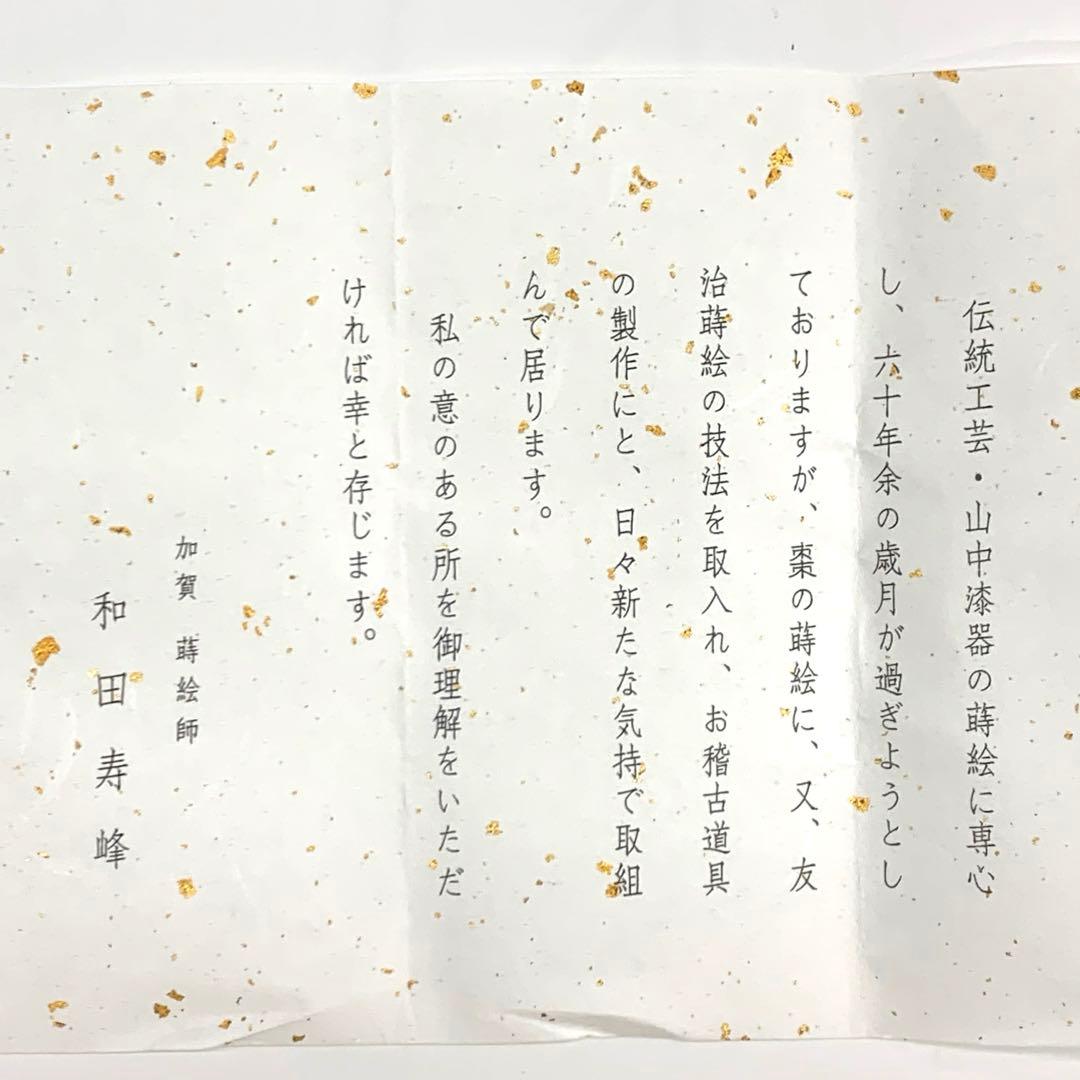 伝統工芸・山中漆器の蒔絵に専心
し、六十年余の歳月が過ぎようとし
ておりますが、棗の蒔絵に、又、友
治蒔絵の技法を取入れ、お稽古道具
の製作にと、日々新たな気持で取組
んで居ります。
私の意のある所を御理解をいただ
ければ幸と存じます。
加賀 蒔絵師
和田寿峰